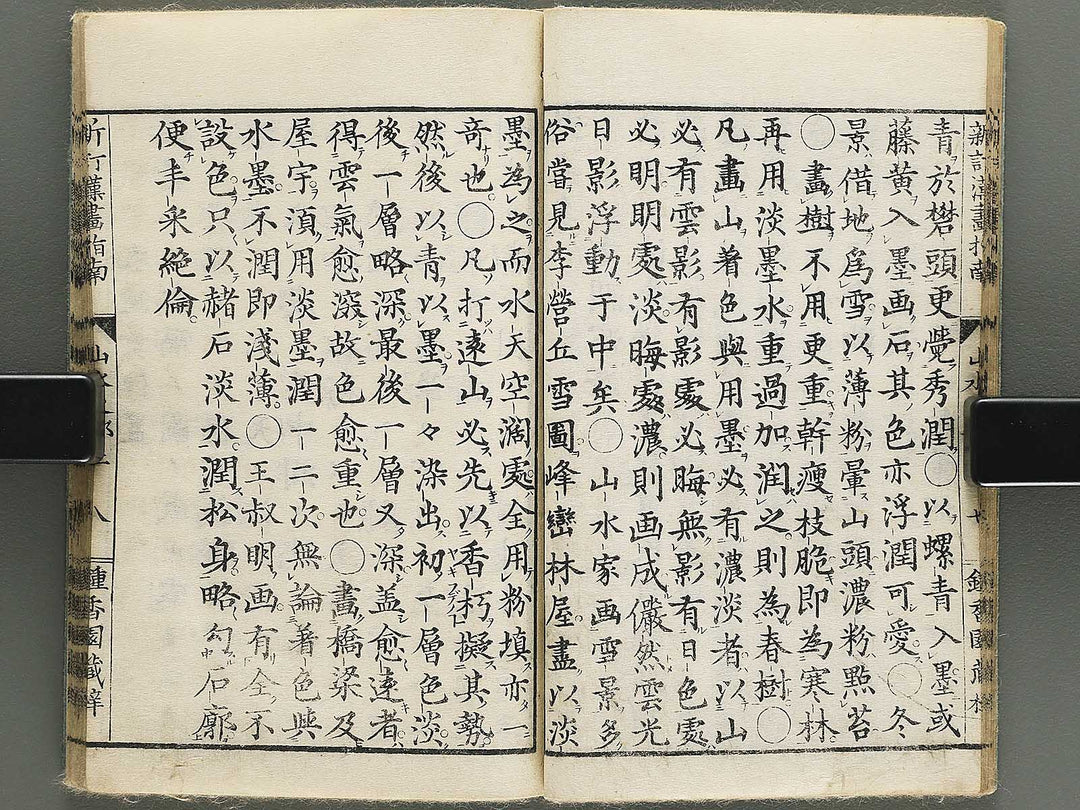 青於礬頭更覺秀潤○以螺青入墨或
藤黄入墨画石其色亦浮潤可愛○冬
景借地爲雪以薄粉暈山頭濃粉點苔
○畫樹不用更重幹瘦枝脆即為寒林
再用淡墨水重過加潤之則為春樹○
凡畫山着色與用墨必有濃淡者以山
必有雲影有影處必晦無影有日色處
必明明處淡晦處濃則画成儼然雲光
日影浮動于中矣○山水家画雪景多
俗嘗見李營丘雪圖峰巒林屋盡以淡
墨為之而水天空濶處全用粉填亦一
奇也○凡打遠山必先以香朽擬其勢
然後以青以墨一々染出初一層色淡
後一層略深最後一層又深盖愈遠者
得雲氣愈深故色愈重也○畫橋梁及
屋宇湏用淡墨潤一二次無論着色與
水墨不潤即淺薄○王叔明画有全不
設色只以赭石淡水潤松身略勾石廓
便丰采絶倫
新訂漢畫指南
山水
八
鍾香園藏梓